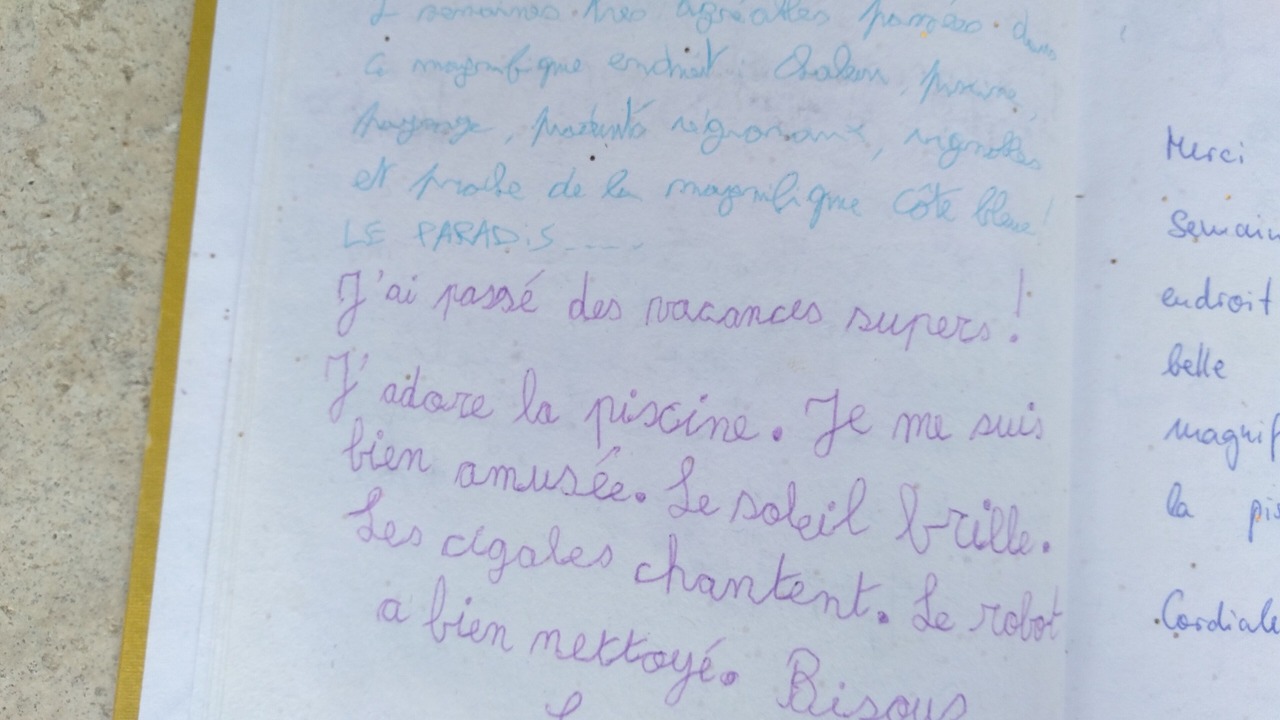 2 semaines très agréables passées dans
ce magnifique endroit : Chaleur, piscine,
paysage, produits régionaux, vignobles
et proche de la magnifique Côte bleue!
LE PARADIS.....
J'ai passé des vacances supers!
J'adore la piscine. Je me suis
bien amusée. Le soleil brille.
Les cigales chantent. Le robot
a bien nettoyé. Bisous
Merci
Semain
endroit
belle
magnif
la pis
Cordiale